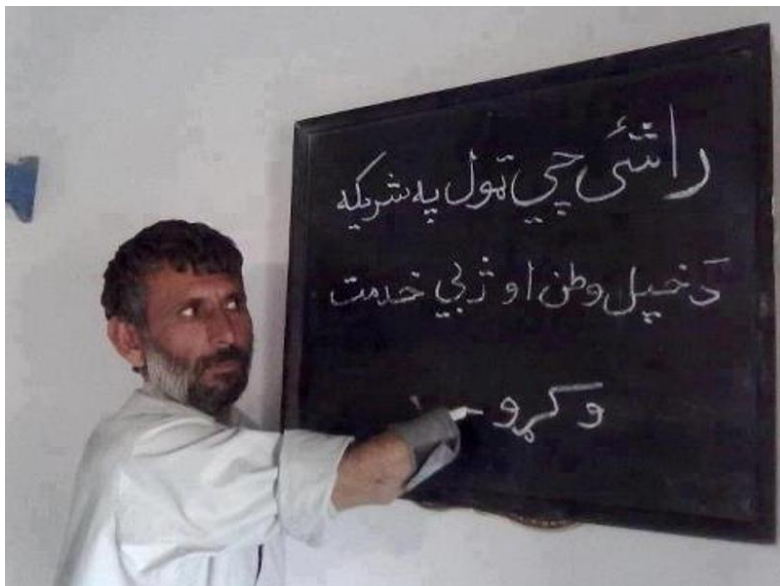 راشئ چي ټول په شريکه
دَ خپل وطن او ژبي خدمت
وکړو